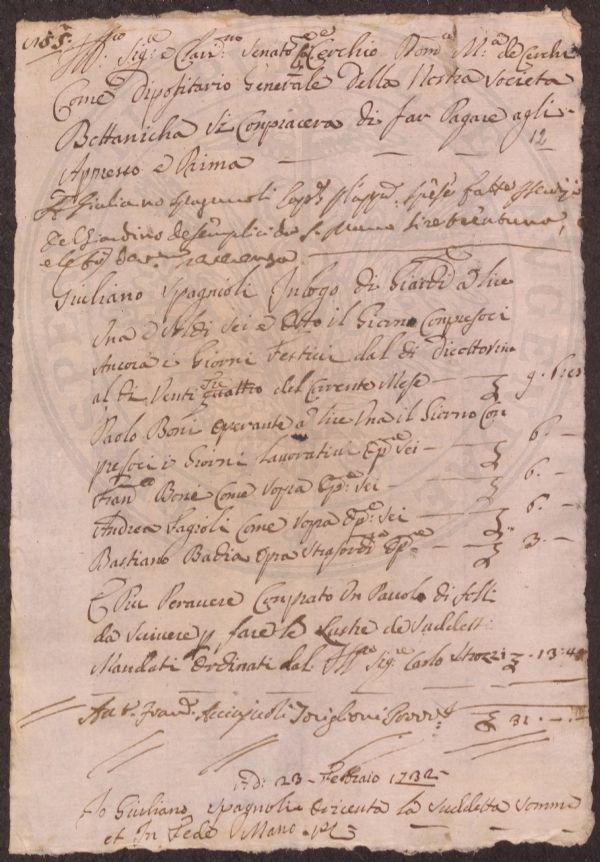 Ill:mo Sig:e e Clar:mo Senato:e Cerchio Dom:o M:a de Cerchi
Come Dipositario Generale della Nostra Societa
Bottanicha Si Conpiacera di far Pagare agli
12
Apresso e Prima
A Giuliano Spagnoli spese fatte
del Giardino de Semplici di lire trentuna
Giuliano Spagnioli In logo di Giardi:e a lire
Una e Soldi Sei e Otto il Giorno Conpresoci
Ancora i Giorni Festivi dal di Diciottesimo
al di Venti quattro del Corente Mese 9. 6:
Paolo Boni Operante a lire Una il Giorno Con
presoci i Giorni Lavorativi Op:e Sei 6. -
Fran:co Boni Come Sopra Op:e Sei 6. -
Andrea Lagioli Come Sopra Op:e Sei 6. -
Bastiano Badia Opra Strasord:ia Op:e 3. -
E Piu Peravere Conprato Un Pavolo di folli
da Scrivere p fare le Lustre de Suddetti
Mandati Ordinati dal Ill:mo Sig:e Carlo Strozzi - 13:4
Ant:o Fran:o Acciajuoli Toriglioni Provv:e 31. -
A di 23 Febbraio 1732
Io Giuliano Spagnoli ò ricevuta la Suddetta Somma
et In Fede Mano